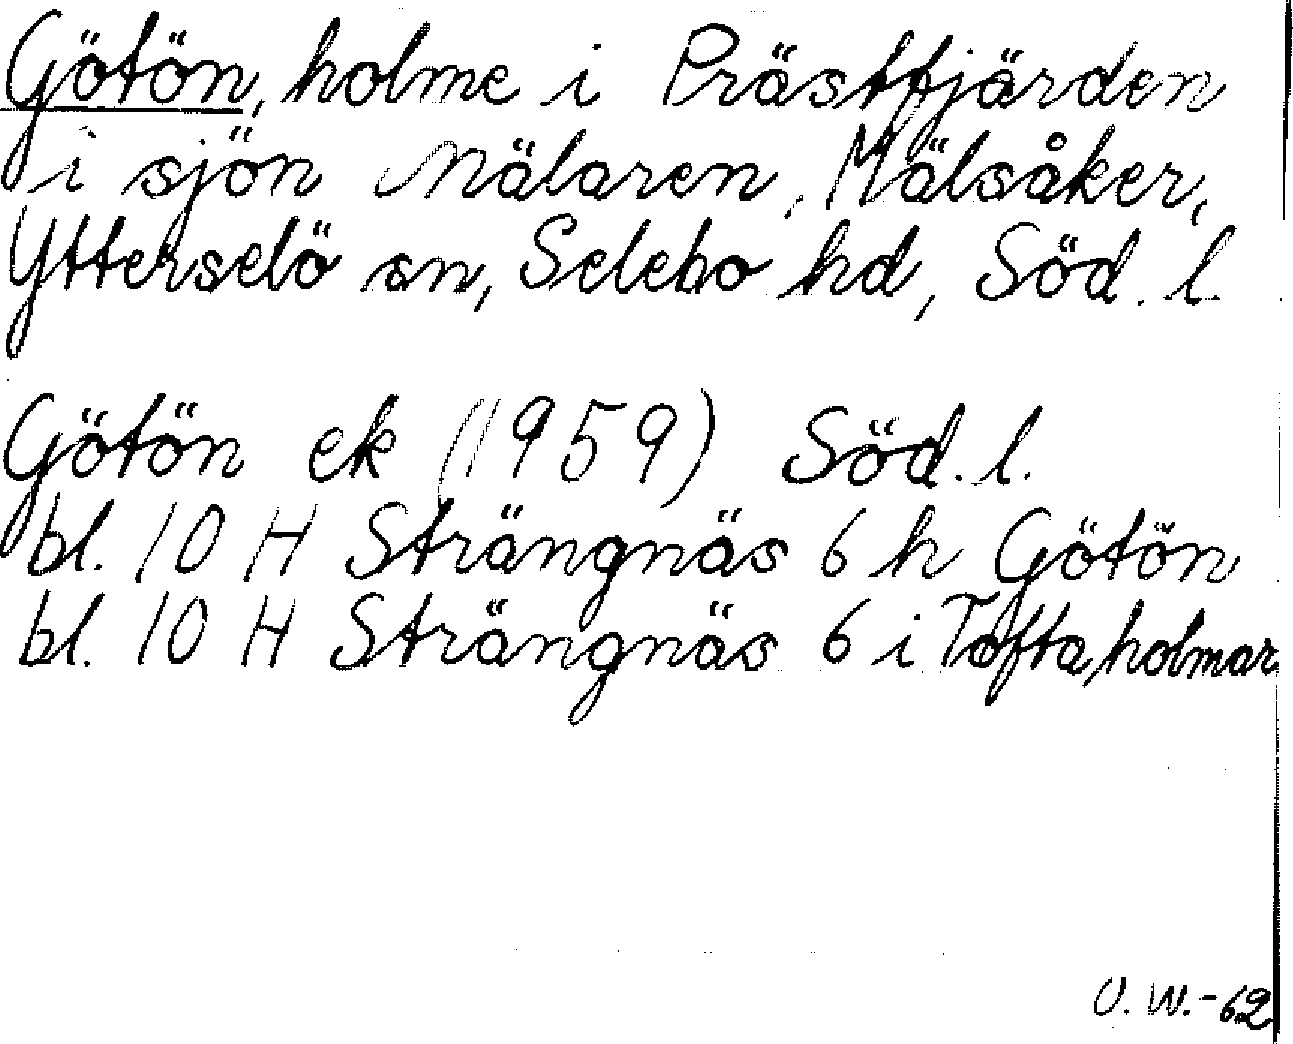 Götön, holme i Prästfjärden
i sjön Mälaren, Mälsåker,
Ytterselö sn, Selebo hd, Söd. l.
Götön ek (1959) Söd. l.
bl. 10 H Strängnäs 6 h Götön
bl. 10 H Strängnäs 6 i Toftaholmar
U. W. -62